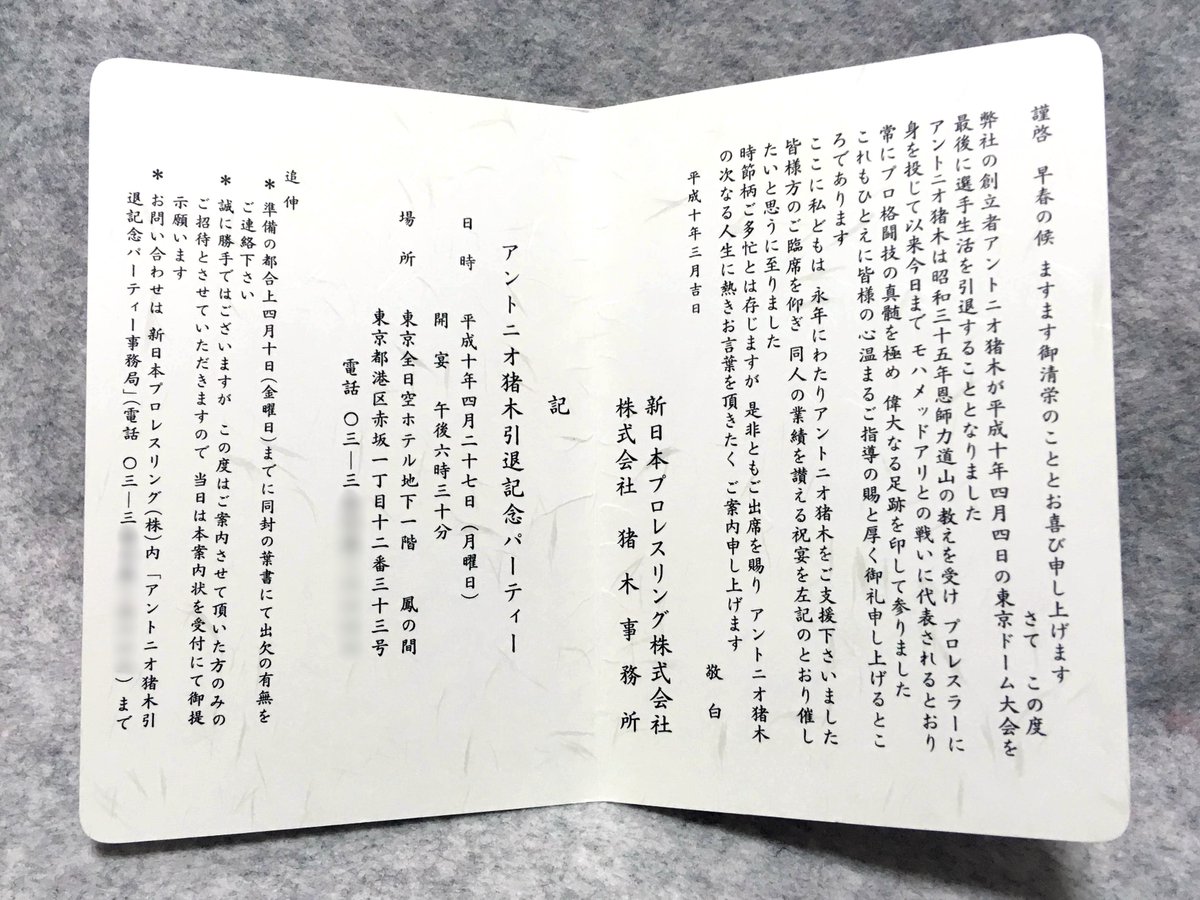 謹啓 早春の候 ますます御清栄のこととお喜び申し上げます
さて この度
弊社の創立者アントニオ猪木が平成十年四月四日の東京ドーム大会を
最後に選手生活を引退することとなりました
アントニオ猪木は昭和三十五年恩師力道山の教えを受け プロレスラーに
身を投じて以来今日まで モハメッドアリとの戦いに代表されるとおり
常にプロ格闘技の真髄を極め 偉大なる足跡を印して参りました
これもひとえに皆様の心温まるご指導の賜と厚く御礼申し上げるとこ
ろであります
ここに私どもは 永年にわたりアントニオ猪木をご支援下さいました
皆様方のご臨席を仰ぎ 同人の業績を讃える祝宴を左記のとおり催し
たいと思うに至りました
時節柄ご多忙とは存じますが 是非ともご出席を賜り アントニオ猪木
の次なる人生に熱きお言葉を頂きたく ご案内申し上げます
敬白
平成十年三月吉日
新日本プロレスリング株式会社
株式会社 猪木事務所
記
アントニオ猪木引退記念パーティー
日時 平成十年四月二十七日(月曜日)
開宴 午後六時三十分
場所 東京全日空ホテル地下一階 鳳の間
東京都港区赤坂一丁目十二番三十三号
電話 〇三―三
追伸
*準備の都合上四月十日(金曜日)までに同封の葉書にて出欠の有無を
ご連絡下さい
*誠に勝手ではございますが この度はご案内させて頂いた方のみの
ご招待とさせていただきますので 当日は本案内状を受付にて御提
示願います
*お問い合わせは 新日本プロレスリング(株)内 「アントニオ猪木引
退記念パーティー事務局」(電話 〇三―三 )まで